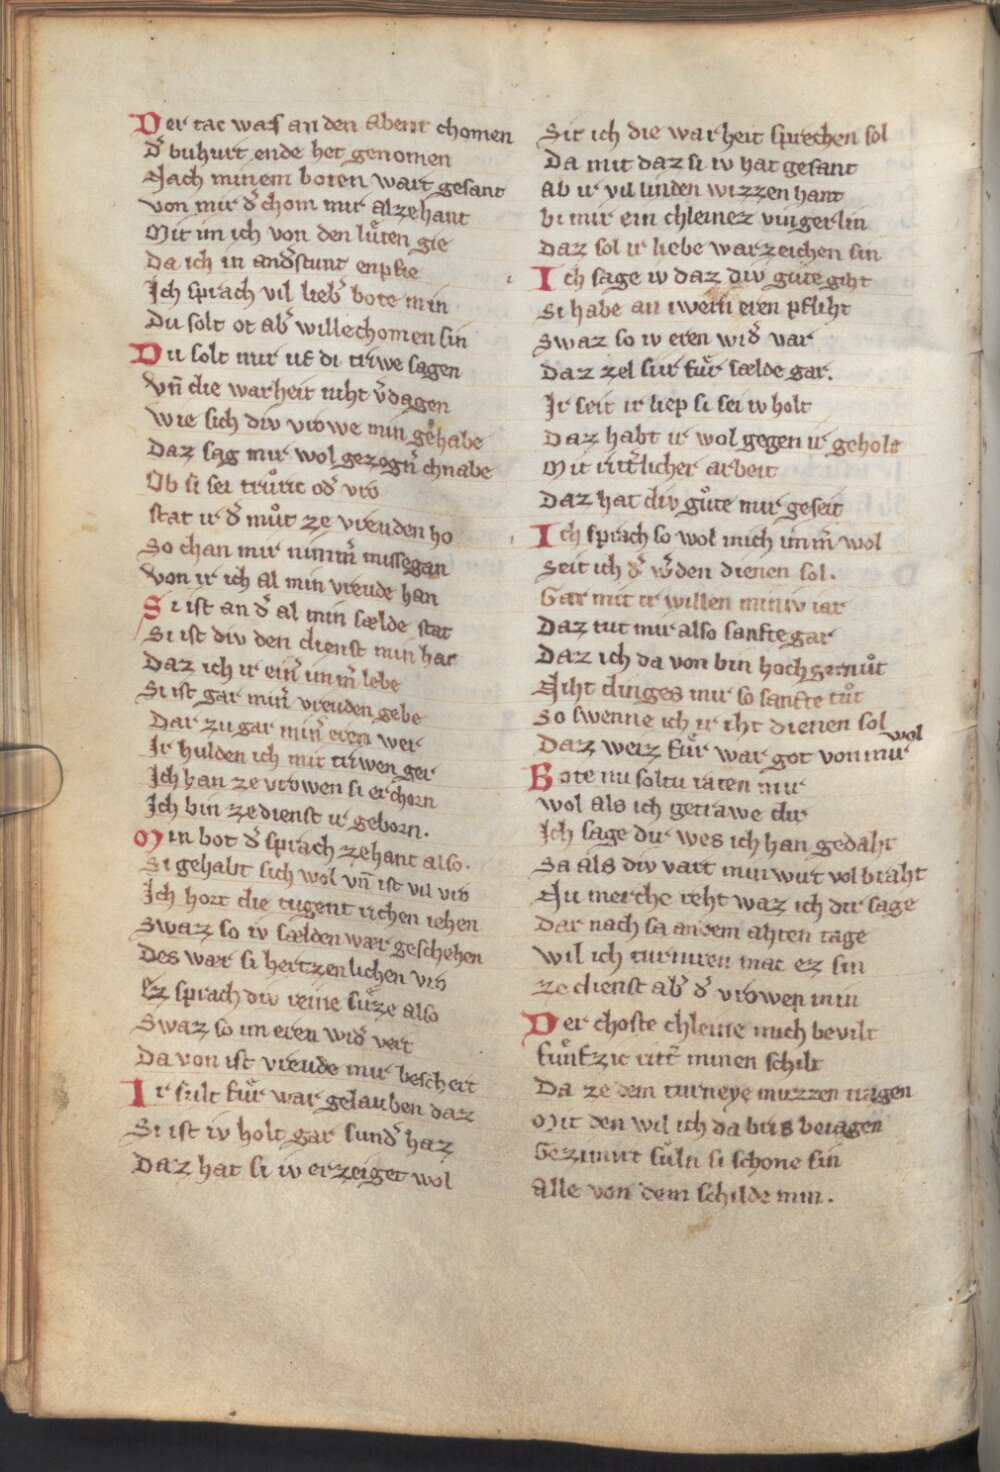 Der tac was an den abent chomen
D̾ buhurt ende het genomen
Nach minem boten wart gesant
von mir d̾ chom mir alzehant
Mit im ich von den luͤten gie
Da ich in and̾stunt enpfie
Ich sprach vil lieb̾ bote min
Du solt ot ab̾ willechomen sin
Du solt mir uf di triwe sagen
Vn̄ die warheit niht v̾dagen
wie sich div vrowe min gehabe
Daz sag mir wol gezogn̾ chnabe
Ob si sei truͤric od̾ vro
stat ir d̾ muͦt ze vreuden ho
so chan mir nimm̾ missegan
von ir ich al min vreude han
Si ist an d̾ al min sælde stat
Si ist div den dienst min hat
Daz ich ir ein̾ imm̾ lebe
Si ist gar min̾ vreuden gebe
Dar zu gar min̾ eren wer
Ir hulden ich mit triwen ger
Ich han ze vrowen si erchorn
Ich bin ze dienst ir geborn.
Min bot d̾ sprach zehant also.
Si gehabt sich wol vn̄ ist vil vro
Ich hort die tugent richen iehen
swaz so iv sælden wær geschehen
Des wær si hertzenlichen vro
Ez sprach div reine suͤze also
Swaz so im eren wid̾ vert
Da von ist vreude mir beschert
Ir sult fuͤr war gelauben daz
Si ist iv holt gar sund̾ haz
Daz hat si iv erzeiget wol
Sit ich die warheit sprechen sol
Da mit daz si iv hat gesant
ab ir vil linden wizzen hant
bi mir ein chleinez vingerlin
Daz sol ir liebe warzeichen sin
Ich sage iv daz div guͤte giht
Si habe an iweın eren pfliht
swaz so iv eren wid̾ var
Daz zel si ir fuͤr sælde gar.
Ir seit ir liep si sei iv holt
Daz habt ir wol gegen ir geholt
Mit ritt̾licher arbeit
Daz hat div guͤte mir geseit
Ich sprach so wol mich imm̾ wol
Seit ich d̾ w̾den dienen sol.
Gar mit ir willen miniv iar
Daz tut mir also sanfte gar
Daz ich da von bin hochgemuͦt
Niht dinges mir so sanfte tuͦt
so swenne ich ir iht dienen sol
Daz weiz fuͤr war got von mir wol
Bote nu soltu raten mir
wol als ich getrawe dir
Ich sage dir wes ich han gedaht
Sa als div vart min wirt volbraht
Nu merche reht waz ich dir sage
Dar nach sa an dem ahten tage
wil ich turniren mac ez sin
ze dienst ab̾ d̾ vrowen min
Der choste chleine mich bevilt
fuͤnfzic ritt̾ minen schilt
Da ze dem turneye muzzen tragen
Mit den wil ich da bris beiagen
Gezimirt suͤln si schone sin
Alle von dem schilde min.